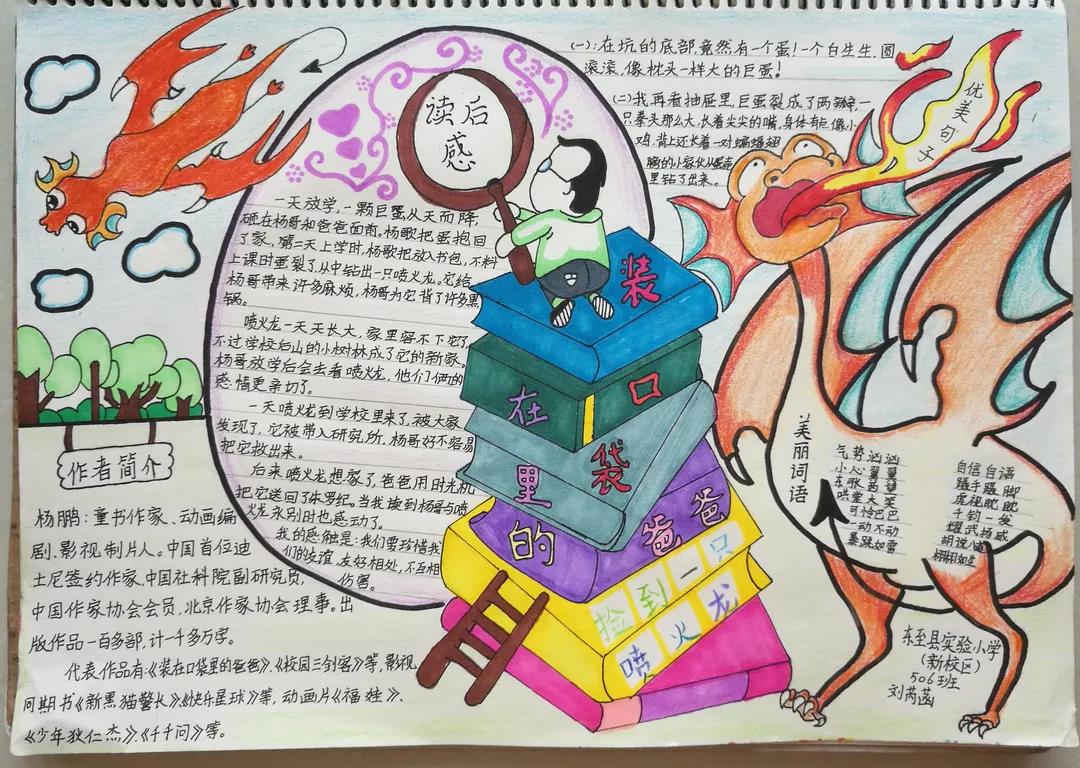 读后
感
一天放学,一颗巨蛋从天而降,
砸在杨哥和爸爸面前。杨歌把蛋抱回
了家,第二天上学时,杨歌把放入书包,不料
上课时蛋裂了,从中钻出一只喷火龙。它给
杨哥带来许多麻烦,杨哥为它背了许多黑
锅。
喷火龙一天天长大,家里容不下它了,
不过学校后山的小树林成了它的新家。
杨哥放学后会去看喷火龙,他们俩的
感情更亲切了。
一天喷火龙到学校里来了,被大家
发现了,它被带入研究所,杨哥好不容易
把它救出来。
后来喷火龙想家了,爸爸用时光机
把它送回了朱罗纪,当我读到杨哥与喷
火龙永别时也感动了。
我的感触是:我们要珍惜我
们的友谊,友好相处,不互相
伤害。
(一):在坑的底部,竟然有一个蛋!一个白生生、圆
滚滚,像枕头一样大的巨蛋!
(二)我再看抽屉里,巨蛋裂成了两瓣,一
只拳头那么大,长着尖尖的嘴,身体有点像小
鸡,背上还长着一对蝙蝠翅
膀的小家伙从蛋壳
里钻了出来。
优美句子
装
在 口
里 袋
的 爸爸
捡到一只
喷火龙
作者简介
杨鹏:童书作家、动画编
剧、影视制片人。中国首位迪
士尼签约作家,中国社科院副研究员,
中国作家协会会员,北京作家协会理事。出
版作品一百多部,计一千多万字。
代表作品有:《装在口袋里的爸爸》、《校园三剑客》等,影视
同期书《新黑猫警长》、《快乐星球》等,动画片《福娃》、
《少年狄仁杰》、《千千问》等。
美丽词语
气势汹汹
小心翼翼
东歌西望
哄堂大笑
可怜巴巴
一动不动
暴跳如雷
自信自语
蹑手蹑脚
虎视眈眈
千钧一发
耀武扬威
胡说八道
栩栩如生
东至县实验小学
(新校区)
506班
刘芮菡